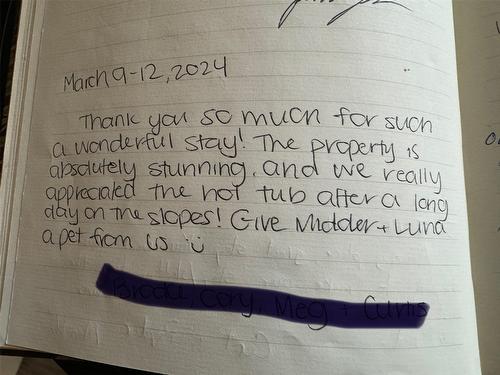 March 9-12, 2024
Thank you so much for such
a wonderful stay! The property is
absolutely stunning, and we really
appreciated the hot tub after a long
day on the slopes! Give Midder + Luna
a pet from us :)